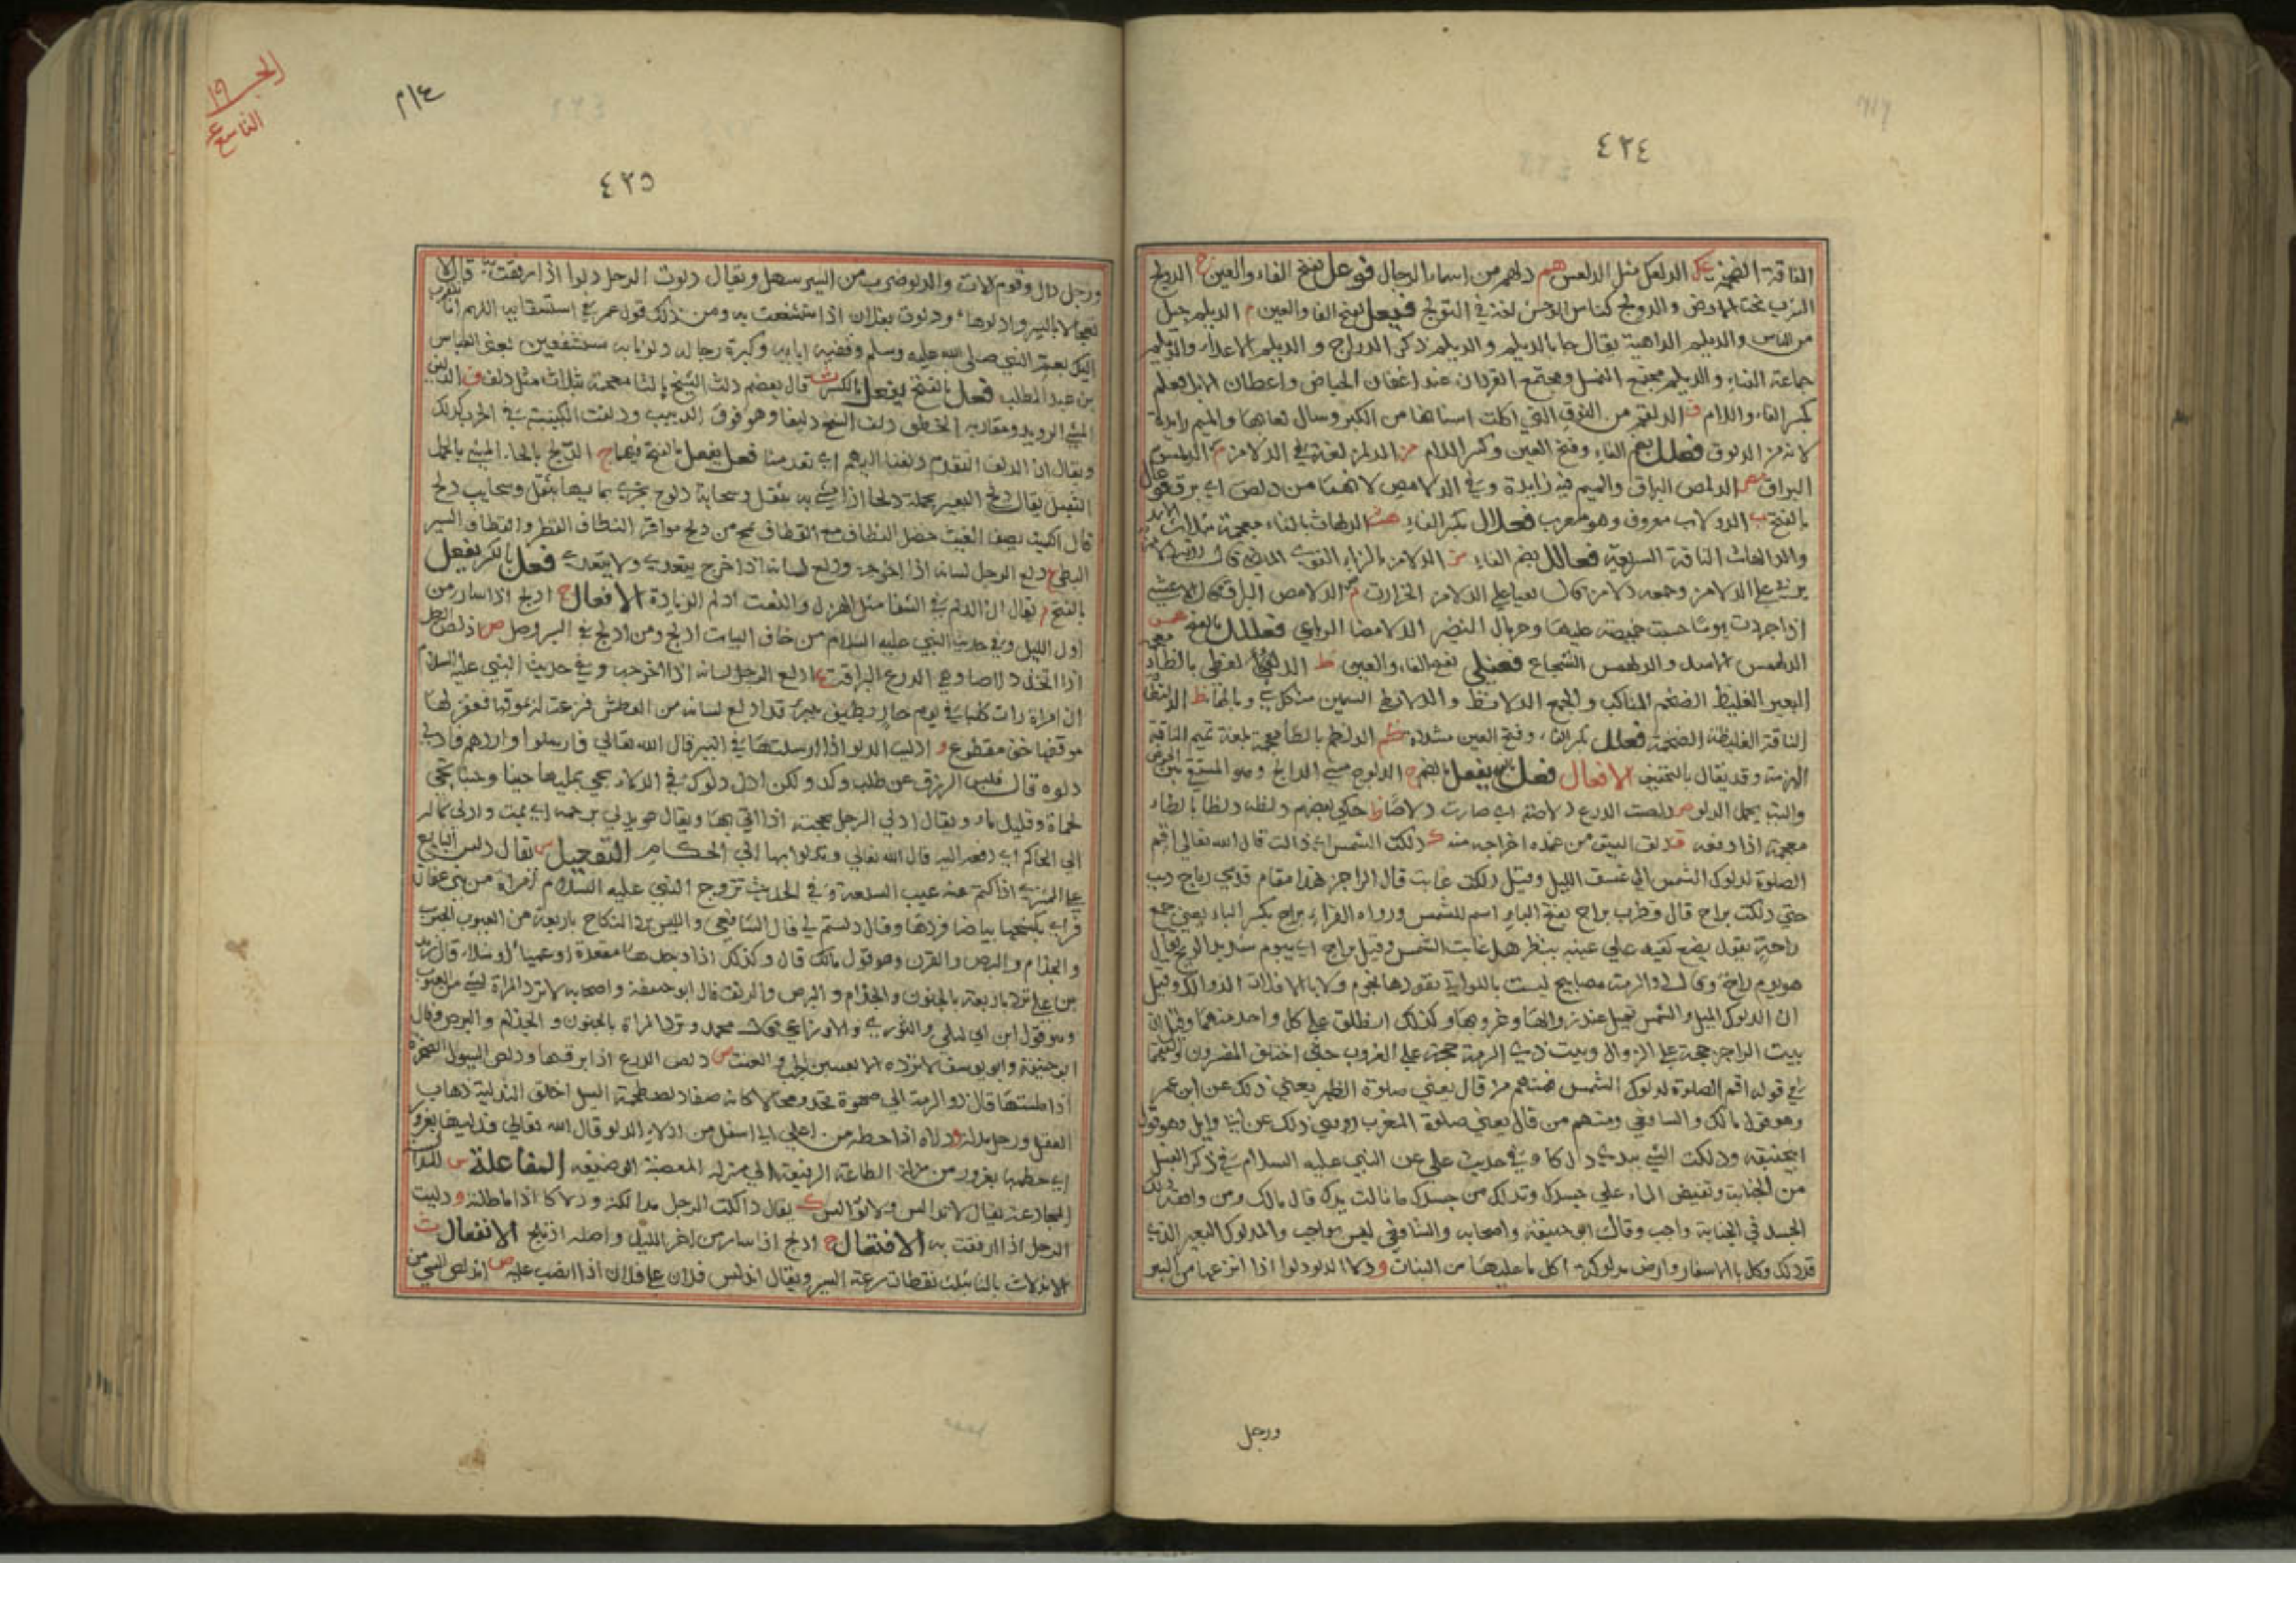 ٤٢٤
الناقة الضخمة عك الدلعك مثل الدلعس هم دلهم من اسماء الرجال فوعل بفتح الفاء والعين ج الدولج
السرب تحت الارض والدولج كناس الوحش لغة في التولج فيعل بفتح الفا والعين م الديلم جيل
من الناس والديلم الداهية يقال جا بالديلم والديلم ذكر الدراج والديلم الاعداء والديلم
جماعة الناس والديلم مجتمع النمل ومجتمع القردان عند اعقار الحياض واعطان الابل فعلم
بكسر الفاء واللام ق الدلقم من النوق التي اكلت اسنانها من الكبر وسال لعابها والميم زايدة
لانه من الدلوق فعلل بضم الفاء وفتح العين وكسر اللام ز الدلمز لغة في الدلامز
البراق ص الدلمص البراق والميم فيه زايدة وفي الدلامص لانهما من دلص اي برق فوعال
بالفتح ب الدولاب معروف وهو معرب فعلال بكسر الفاء هث الدلهاث بالثاء معجمة بثلاث الاسد
والدلهاث الناقة السريعة فعالل بضم الفاء مز الدلامز بالزاء القوي الماضي قال
وجمعه دلامز قال يعيا على الدلامز الخرارت مص الدلامص البراق قال الاعشى
اذا جردت يوما حسبت خميصة عليها وجريال النضير الدلامصا الرباعي فعلل بالفتح همس
الدلهمس الاسد والدلهمس الشجاع فعنلى بفتح الفاء والعين ظ الدلنظى بالظاء معجمة
البعير الغليظ الضخم المناكب والجمع الدلانظ والدلانظي السمين من كل شي وبالهاء ظ الدلنظاة
الناقة الغليظة الضخمة فعلل بكسر الفاء وفتح العين مشددة ظم الدلظم بالظا معجمة بلغة تميم الناقة
الهرمة وقد يقال بالتخفيف الافعال فعل بالفتح يفعل بالضم ج الدلوج مشي الدالج وهو المستقي بين الحوض
والبئر يحمل الدلو ص دلصت الدرع دلاصة اي صارت دلاصا ظ حكى بعضهم دلظه دلظا بالظاء
معجمة اذا دفعه ق دلق السيف من غمده اخراجه منه ك دلكت الشمس اي زالت قال الله تعالى اقم
الصلوة لدلوك الشمس الى غسق الليل وقيل دلكت غابت قال الراجز هذا مقام قدمي رباح ذبب
حتى دلكت براح قال قطرب براح بفتح الباء اسم للشمس ورواه الفراء براح بكسر الباء يعني جمع
راحة يقول يضع كفيه على عينه ينظر هل غابت الشمس وقيل براح اي بيوم شديد الريح يقال
هو يوم راح وقال ذو الرمة مصابيح ليست باللواتي تقودها نجوم ولا بالافلات الدوالك وقيل
ان الدلوك الميل والشمس تميل عند زوالها وغروبها وكذلك انطلق على كل واحد منهما وقيل ان
بيت الراجز حجة على الزوال وبيت ذي الرمة حجة على الغروب حتى اختلف المفسرون والفقها
في قوله اقم الصلوة لدلوك الشمس فمنهم من قال يعني صلوة الظهر يعني ذلك عن ابن عمر
وهو قول مالك والشافعي ومنهم من قال يعني صلوة المغرب روي ذلك عن ابي وايل وهو قول
ابي حنيفة ودلكت الشي بيدي دلكا وفي حديث علي عن النبي عليه السلام في ذكر الغسل
من الجنابة وتفيض الماء على جسدك وتدلك من جسدك ما نالت يدك قال مالك ومن وافقه دلك
الجسد في الجنابة واجب وقال ابو حنيفة واصحابه والشافعي ليس بواجب والمدلوك البعير الذي
قد دلك وكل بالاسفار وارض مدلوكة اكل ما عليها من النبات و دلا الدلو دلوا اذا انتزعها من البير
ورجل
الجز ١٩
التاسع عشر
٤٢٥
ورجل دال وقوم دلاة والدلو ضرب من السير سهل ويقال دلوت الرجل دلوا اذا رفقت به قال لا
تعجلا بالسير وادلوها ودلوت بفلان اذا استشفعت به ومن ذلك قول عمر في استسقايه اللهم انا نتقرب
اليك بعم النبي صلى الله عليه وسلم وقفية ابايه وكبرة رجاله دلونا به مستشفعين يعني العباس
بن عبد المطلب فعل بالفتح يفعل بالكسر ث قال بعضهم دلث الشيخ بالثا معجمة بثلاث مثل دلف ف الدلف
المشي الرويد ومقاربة الخطو دلف الشيخ دليفا وهو فوق الدبيب ودلفت الكتيبة في الحرب كذلك
ويقال ان الدلف التقدم دلفنا اليهم اي تقدمنا فعل يفعل بالفتح فيهما ح الدلح بالحاء المشي بالحمل
الثقيل يقال دلح البعير بحمله دلحا اذا مشى به بثقل وسحابة دلوح تجري بما بها بثقل وسحايب دلح
البطي ع دلع الرجل لسانه اذا اخرجه ودلع لسانه اذا خرج يتعدى ولا يتعدى فعل بالكسر يفعل
بالفتح م يقال ان الدلم في الشفا مثل الهدل والنعت ادلم الزيادة الافعال ج ادلج اذا سار من
اول الليل وفي حديث النبي عليه السلام من خاف البيات ادلج ومن ادلج في السير وصل ص ادلص الرجل
اذا اتخذ دلاصا وهي الدرع البراقة ع ادلع الرجل لسانه اذا اخرجه وفي حديث النبي عليه السلام
ان امراة رات كلبا في يوم حار يطيف ببير قد ادلع لسانه من العطش فنزعت له بموقها فغفر لها
موقها خف مقطوع و ادليت الدلو اذا ارسلتها في البير قال الله تعالى فارسلوا واردهم فادلى
دلوه قال فليس الرزق عن طلب وكد ولكن ادل دلوك في الدلاء تجي بمليها حينا وحينا تجي
بحماة وقليل ماء ويقال ادلى الرجل بحجته اذا اتى بها ويقال هو يدلي برحمه اي يمت وادلى بماله
الى الحاكم اي دفعه اليه قال الله تعالى وتدلوا بها الى الحكام التفعيل س يقال دلس البايع
على المشتري اذا كتم عنه عيب السلعة وفي الحديث تزوج النبي عليه السلام امراة من بني غفار
فراى بكشحها بياضا فردها وقال دلستم لي قال الشافعي والليس يرد النكاح باربعة من العيوب الجنون
والجذام والبرص والقرن وهو قول مالك قال وكذلك اذا وجدها مقعدة او عمياء او شلاء قال زيد
بن علي ترد باربعة بالجنون والجذام والبرص والرتق قال ابو حنيفة واصحابه لا ترد المراة لشي من العيوب
وهو قول ابن ابي ليلى والثوري والاوزاعي وقال محمد وترد المراة بالجنون والجذام والبرص وقال
ابو حنيفة وابو يوسف لا ترده الا بعيبين الجب والعنت ص دلص الدرع اذا برقها ودلص السيول الصخرة
اذا ملستها قال ذو الرمة الى صهوة تحدو محالا كانه صفا دلصته طحمة السيل اخلق التدلية ذهاب
العقل ورجل مدله و دلاه اذا حطه من اعلى الى اسفل من ادلاء الدلو قال الله تعالى فدلاهما بغرور
اي حطهما بغرور من منزلة الطاعة الرفيعة الى منزلة المعصية الوضيعة المفاعلة س المدالسة
المخادعة يقال لا تدالس ولا توالس ك يقال دالكت الرجل مدالكة ودلاكا اذا ماطلته و داليت
الرجل اذا ارفقت به الافتعال ج ادلج اذا سار من اخر الليل واصله ادتلج الانفعال ث
الاندلاث بالثا بثلاث نقطات سرعة السير ويقال اندلس فلان على فلان اذا انصب عليه ص اندلص الشي من